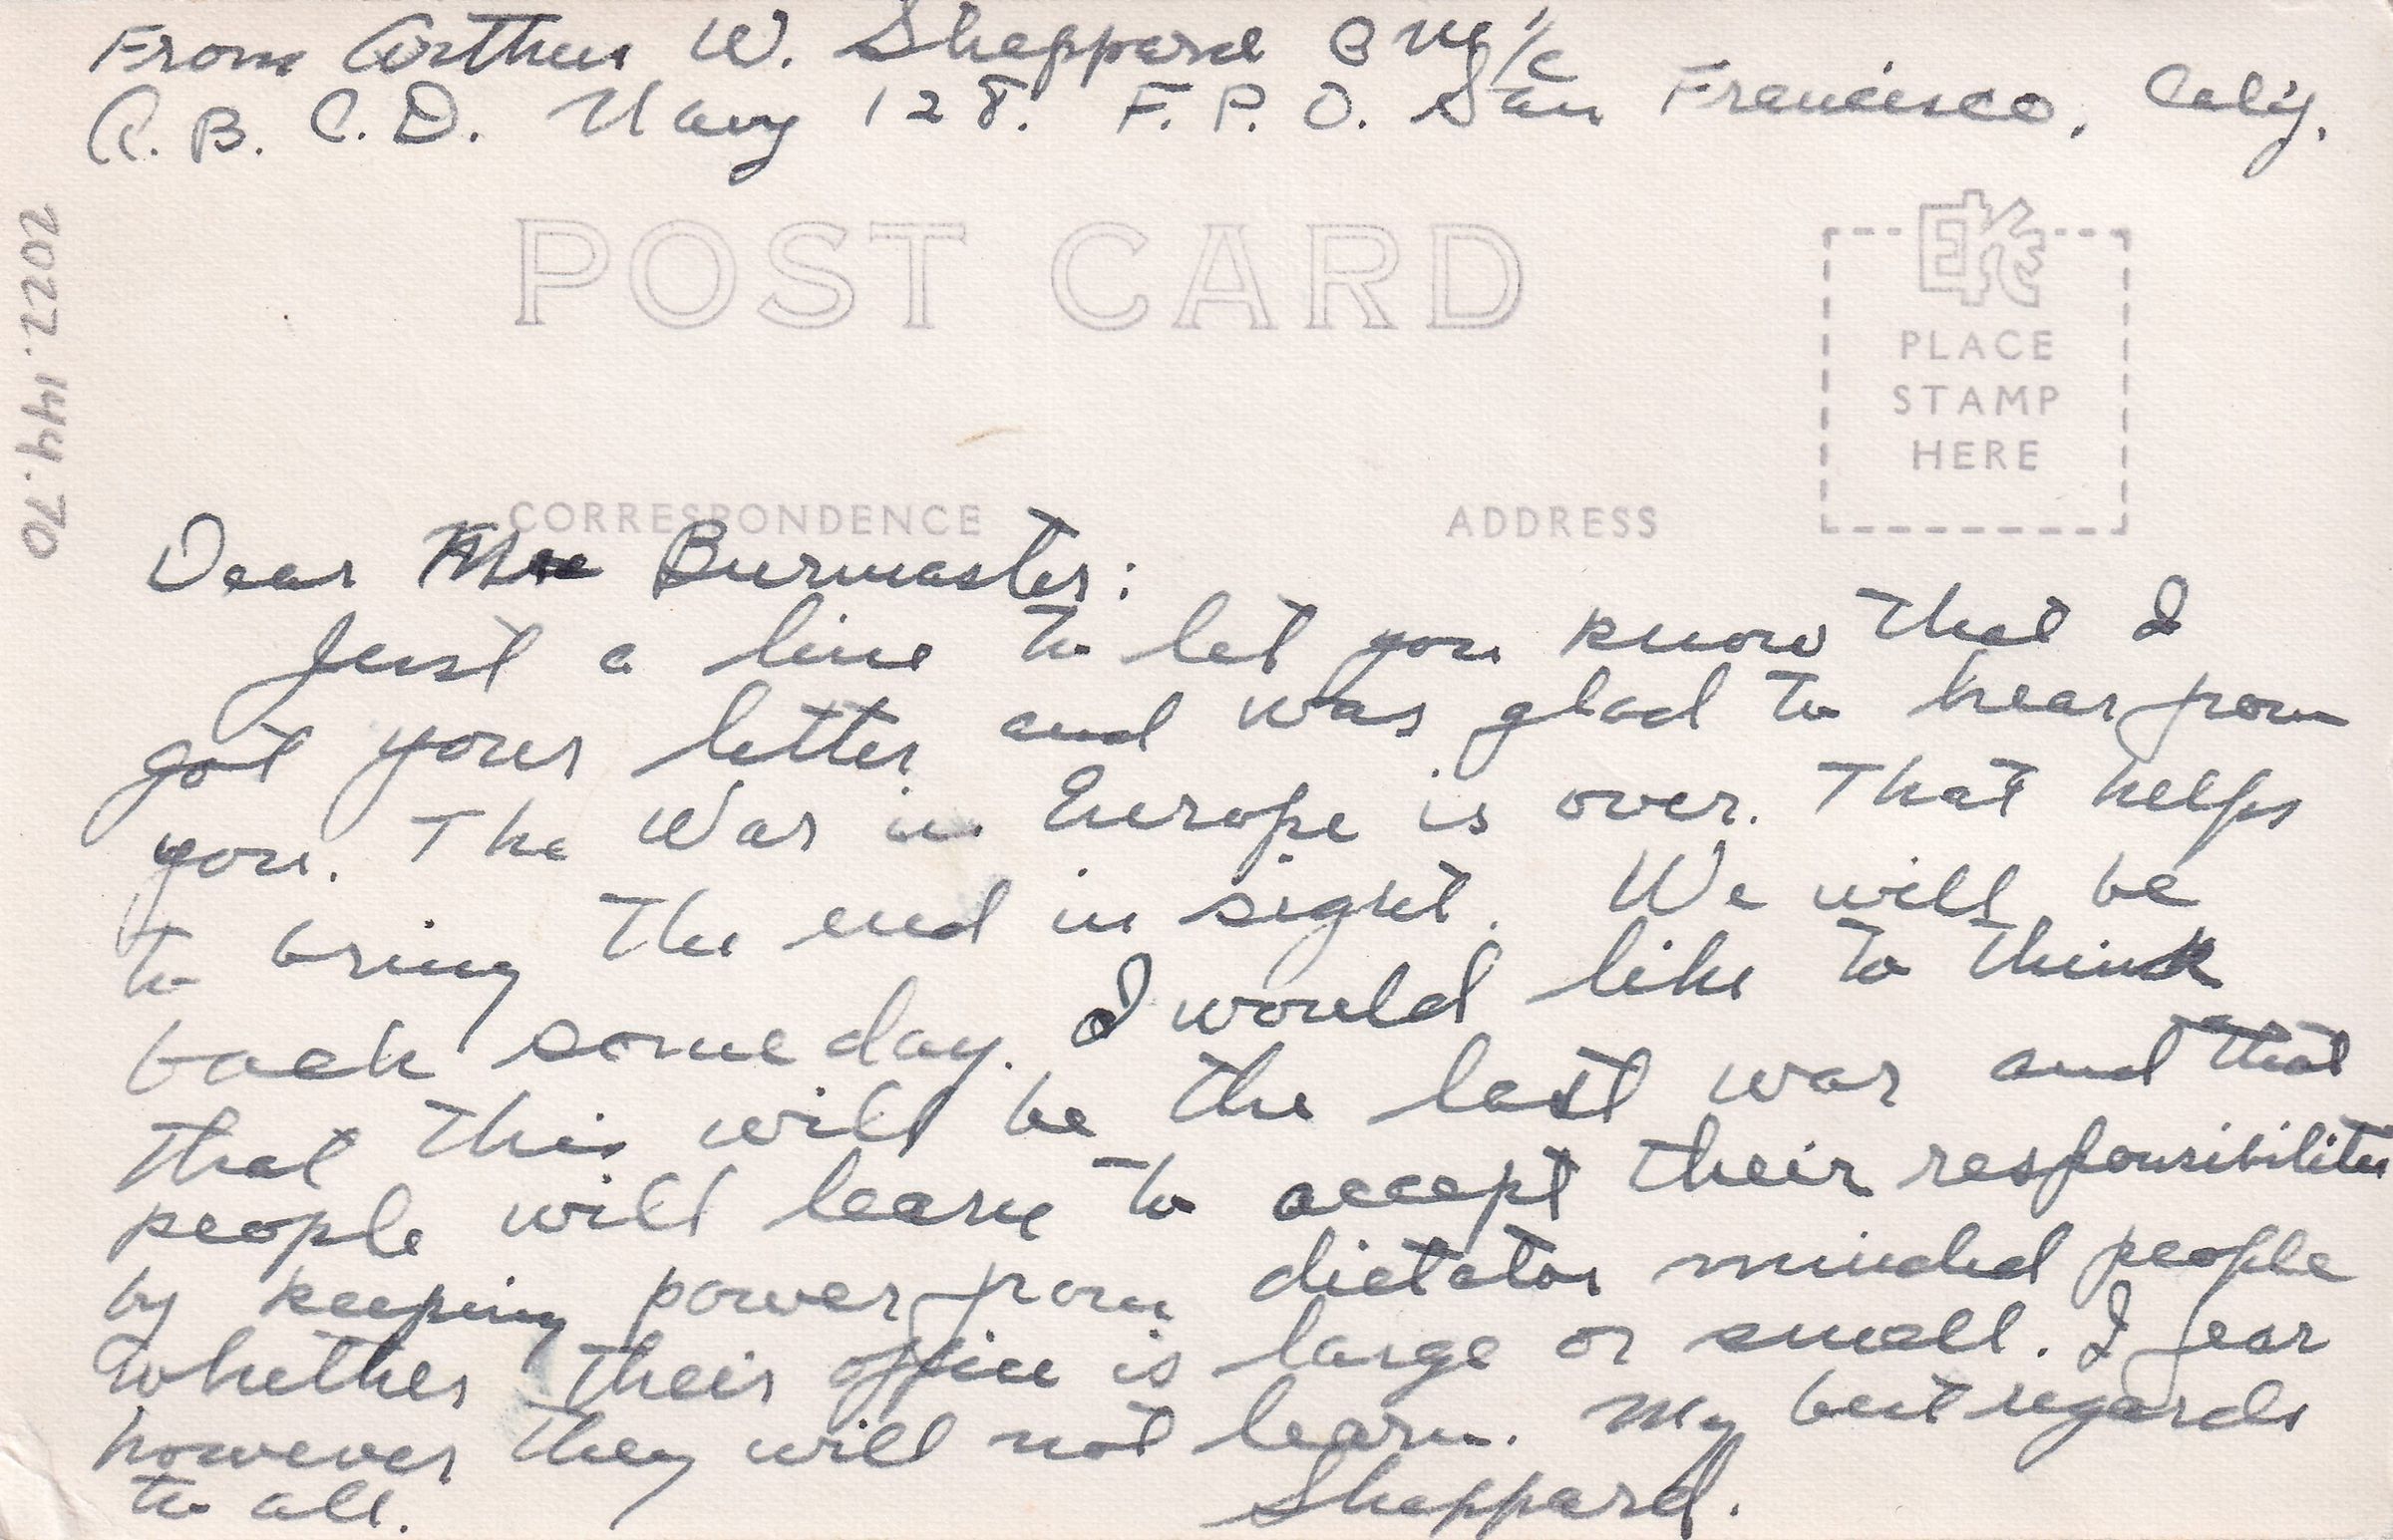 From Arthur W. Sheppard B M 1/c
A. B. C. D. Navy 128. F. P. O. San Francisco, Calif.
2022.144.70
POST CARD
EKC
PLACE
STAMP
HERE
CORRESPONDENCE
ADDRESS
Dear Burmaster:
Just a line to let you know that I
got your letter and was glad to hear from
you. The War in Europe is over. That helps
to bring the end in sight. We will be
back some day. I would like to think
that this will be the last war and that
people will learn to accept their responsibilities
by keeping power from dictator minded people
whether their office is large or small. I fear
however they will not learn. My best regards
to all.
Sheppard.